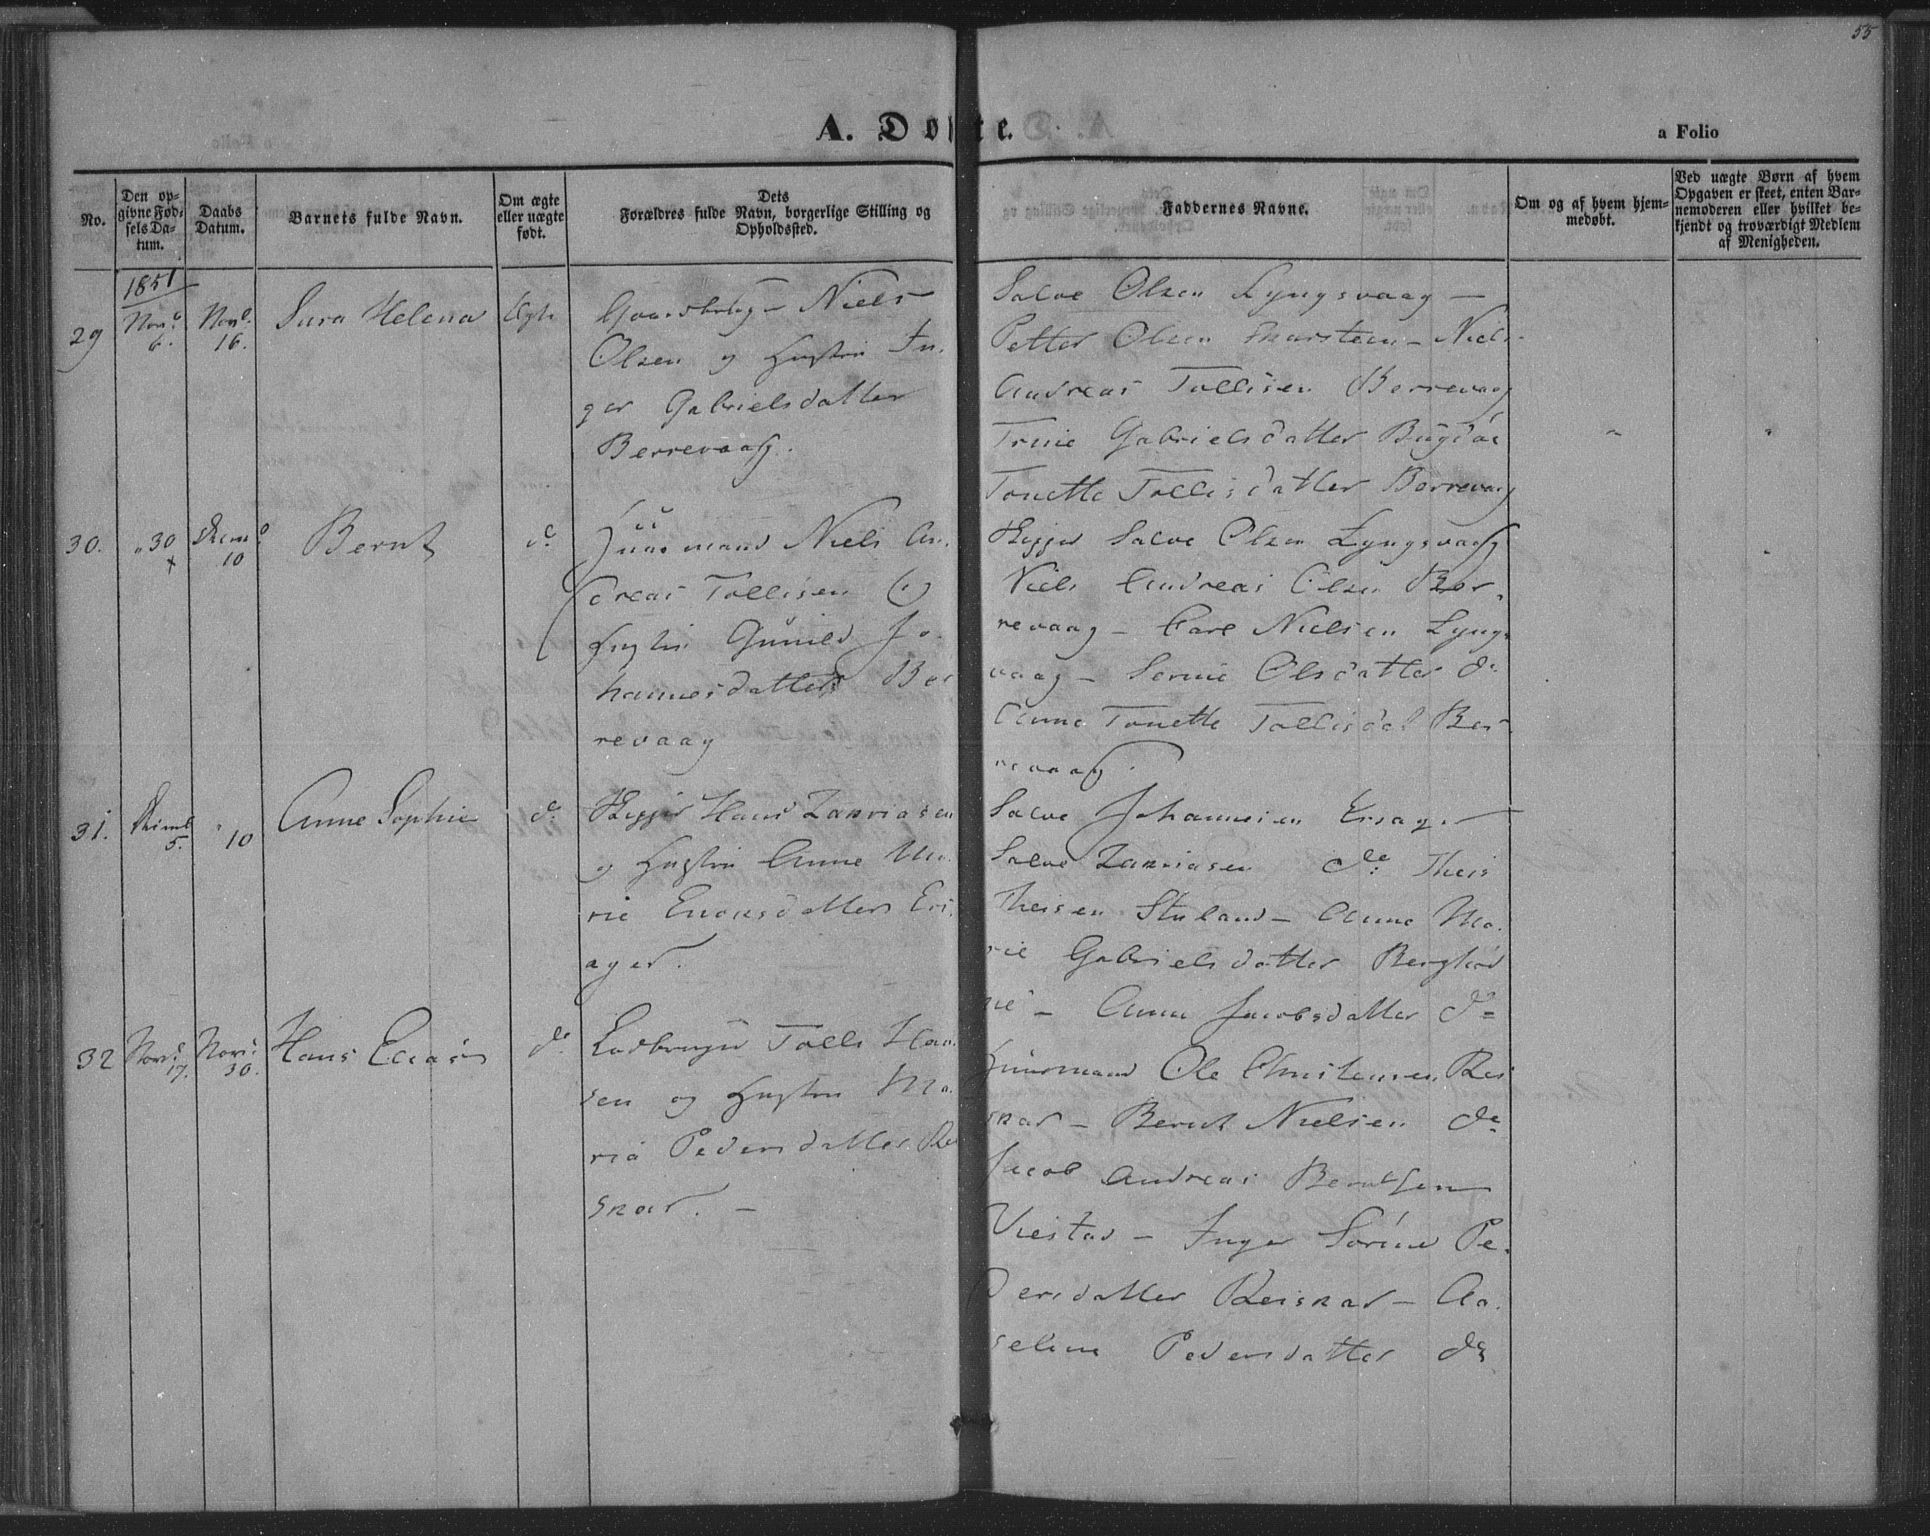 55
A. Døbte.
a Folio
No.
Den op-
givne Fød-
sels Da-
tum.
Daabs
Datum.
Barnets fulde Navn.
Om ægte
eller uægte
født.
Dets
Forældres fulde Navn, borgerlige Stilling og
Opholdssted.
Faddernes Navne.
Om og af hvem hjem-
medøbt.
Ved uægte Børn af hvem
Opgaven er skeet, enten Bar-
nemoderen eller hvilket be-
kjendt og troværdigt Medlem
af Menigheden.
1851
29
Novb
6.
Novb
16.
Sara Helena
Niels
Olsen og Hustru In-
ger Gabrielsdatter
Berrevaag.
Salve Olsen Lyngsvaag –
Petter Olsen – Niels
Andreas Tollisen Berrevaag
Trine Gabrielsdatter Bugdøe
Tonette Tollisdatter Berrevaag
30.
" 30
+
10
Bernt
do
Huusmand Niels An-
dreas Tollisen (
Hustru Gunild Jo-
hannesdatter Ber
revaag
Skipper Salve Olsen Lyngsvaag
Niels Andreas Olsen Ber-
revaag – Carl Nielsen Lyngs
vaag – Serine Olsdatter do
Anne Tonette Tollisdat Ber-
revaag.
31.
5.
" 10
Anne Sophie
do
Skipper Hans Zakriasen
og Hustru Anne Ma-
rie Enonsdatter Eri-
ager.
Salve Johannesen Eriager
Salve Zakriasen do Theis
Theisen – Anne Ma-
rie Gabrielsdatter
ne – Anne Jacobsdatter do
32
Novb
17.
Novb
30.
Hans Elias
do
Tolli Han-
sen og Hustru Ma-
ria Pedersdatter Re
snar. –
Huusmand Ole Christensen Rei
snar – Bernt Nielsen do
Jacob Andreas Berntsen
Viestad – Inger Sørine Pe-
dersdatter Reisnar – Aa-
seline Pedersdatter do